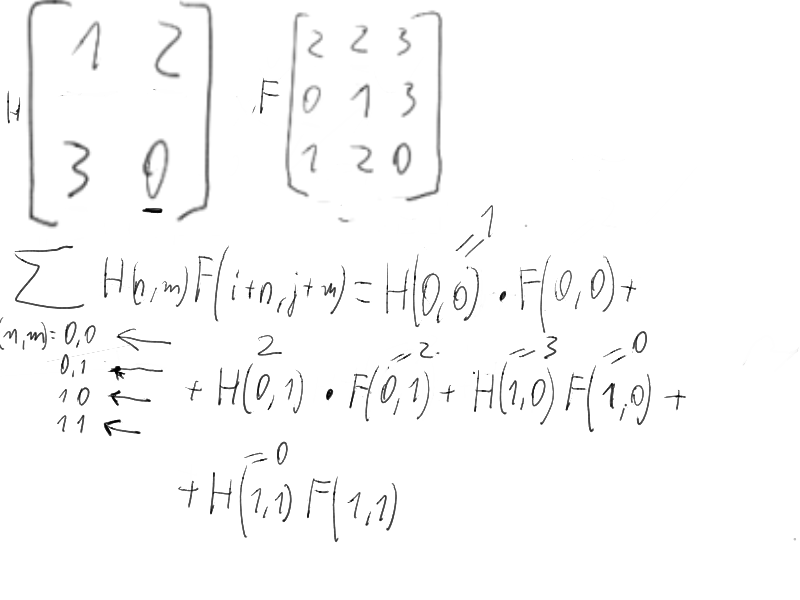 H [ 1 2
3 0 ]
F [ 2 2 3
0 1 3
1 2 0 ]
=1
∑ H(n,m)F(i+n,j+m)=H(0,0)·F(0,0)+
(n,m)=0,0 ←
2 =2 =3 =0
0,1 ←
+H(0,1)·F(0,1)+H(1,0)F(1,0)+
1 0 ←
1 1 ←
=0
+H(1,1)F(1,1)